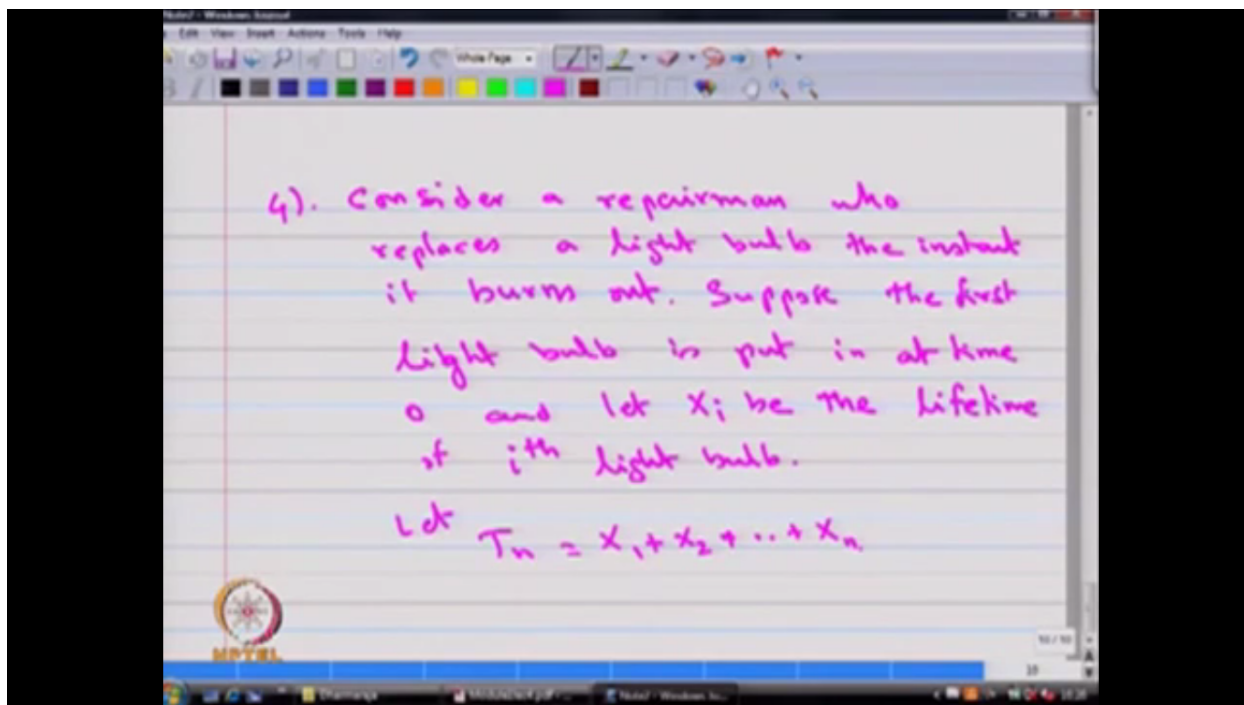 Note2 - Windows Journal
Edit View Insert Actions Tools Help
Whole Page
4). Consider a repairman who
replaces a light bulb the instant
it burns out. Suppose the first
light bulb is put in at time
0 and let Xi be the lifetime
of ith light bulb.
Let Tn = X1 + X2 + .. + Xn.
NPTEL
10 / 10
10
Dharmaraja
Note2 - Windows Jo...